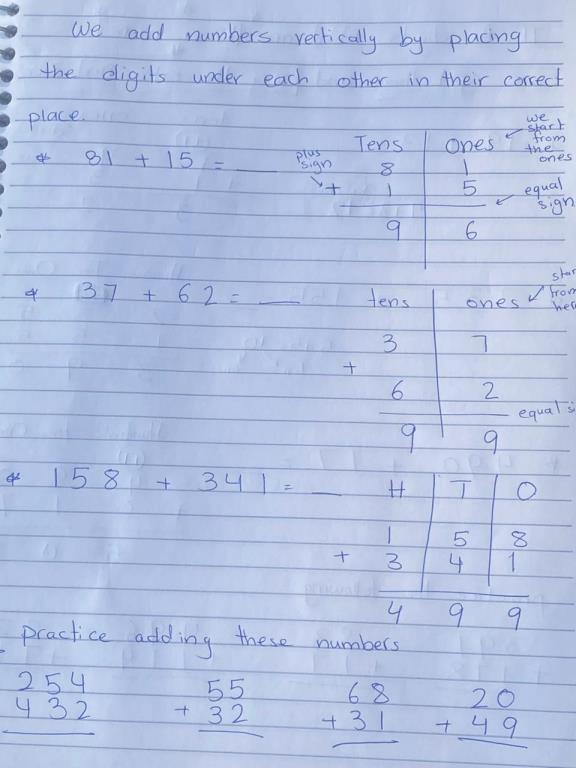 We add numbers vertically by placing
the digits under each other in their correct
place.
* 81 + 15 = __
plus
sign
Tens | Ones
we
start
from
the
ones
8 | 1
+ 1 | 5
equal
sign
9 | 6
* 37 + 62 = __
tens | ones
from
3 | 7
+
6 | 2
equal
9 | 9
* 158 + 341 = __
H | T | O
1 | 5 | 8
+ 3 | 4 | 1
4 9 9
Practice adding these numbers
254 55 68 20
432 + 32 + 31 + 49